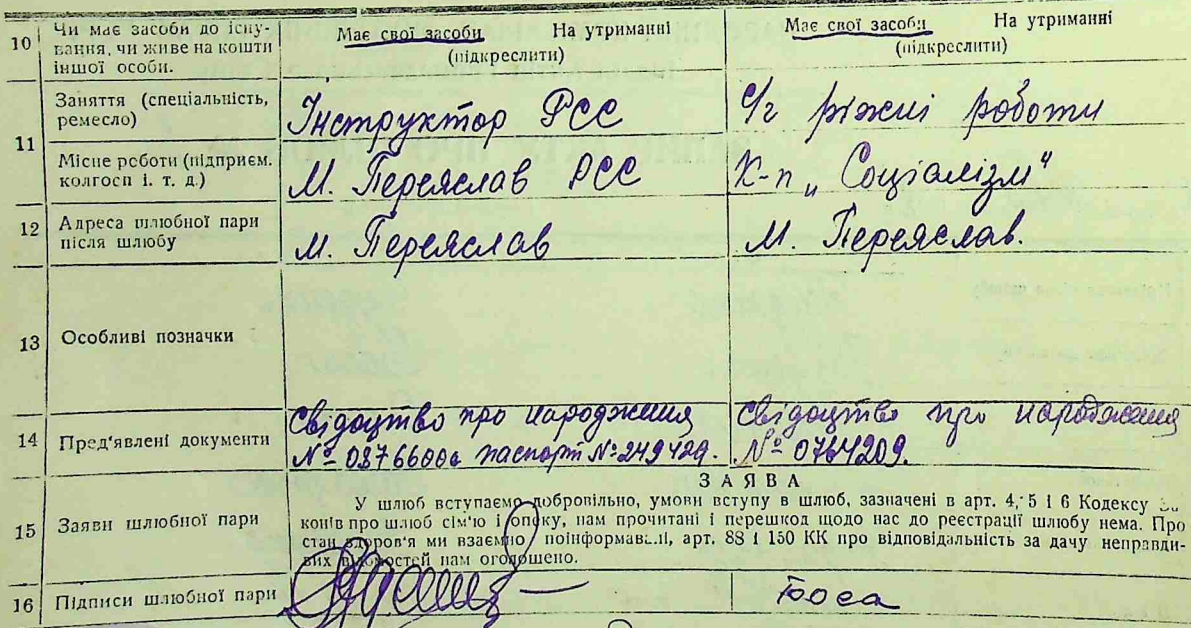 10 Чи має засоби до існу-
вання, чи живе на кошти
іншої особи.
Має свої засоби На утриманні
(підкреслити)
Має свої засоби На утриманні
(підкреслити)
11 Заняття (спеціальність,
ремесло)
Інструктор РСС
с/г ріжні роботи
Місце роботи (підприєм.
колгосп і. т. д.)
М. Переяслав РСС
К-п „Соціалізм"
12 Адреса шлюбної пари
після шлюбу
М. Переяслав
М. Переяслав.
13 Особливі позначки
14 Пред'явлені документи
Свідоцтво про народження
паспорт № 249429.
Свідоцтво про народження
№ 0764209.
15 Заяви шлюбної пари
ЗАЯВА
У шлюб вступаємо добровільно, умови вступу в шлюб, зазначені в арт. 4, 5 і 6 Кодексу за-
конів про шлюб сім'ю і опіку, нам прочитані і перешкод щодо нас до реєстрації шлюбу нема. Про
стан здоров'я ми взаємно поінформавані, арт. 88 і 150 КК про відповідальність за дачу неправди-
вих відомостей нам оголошено.
16 Підписи шлюбної пари
Боса